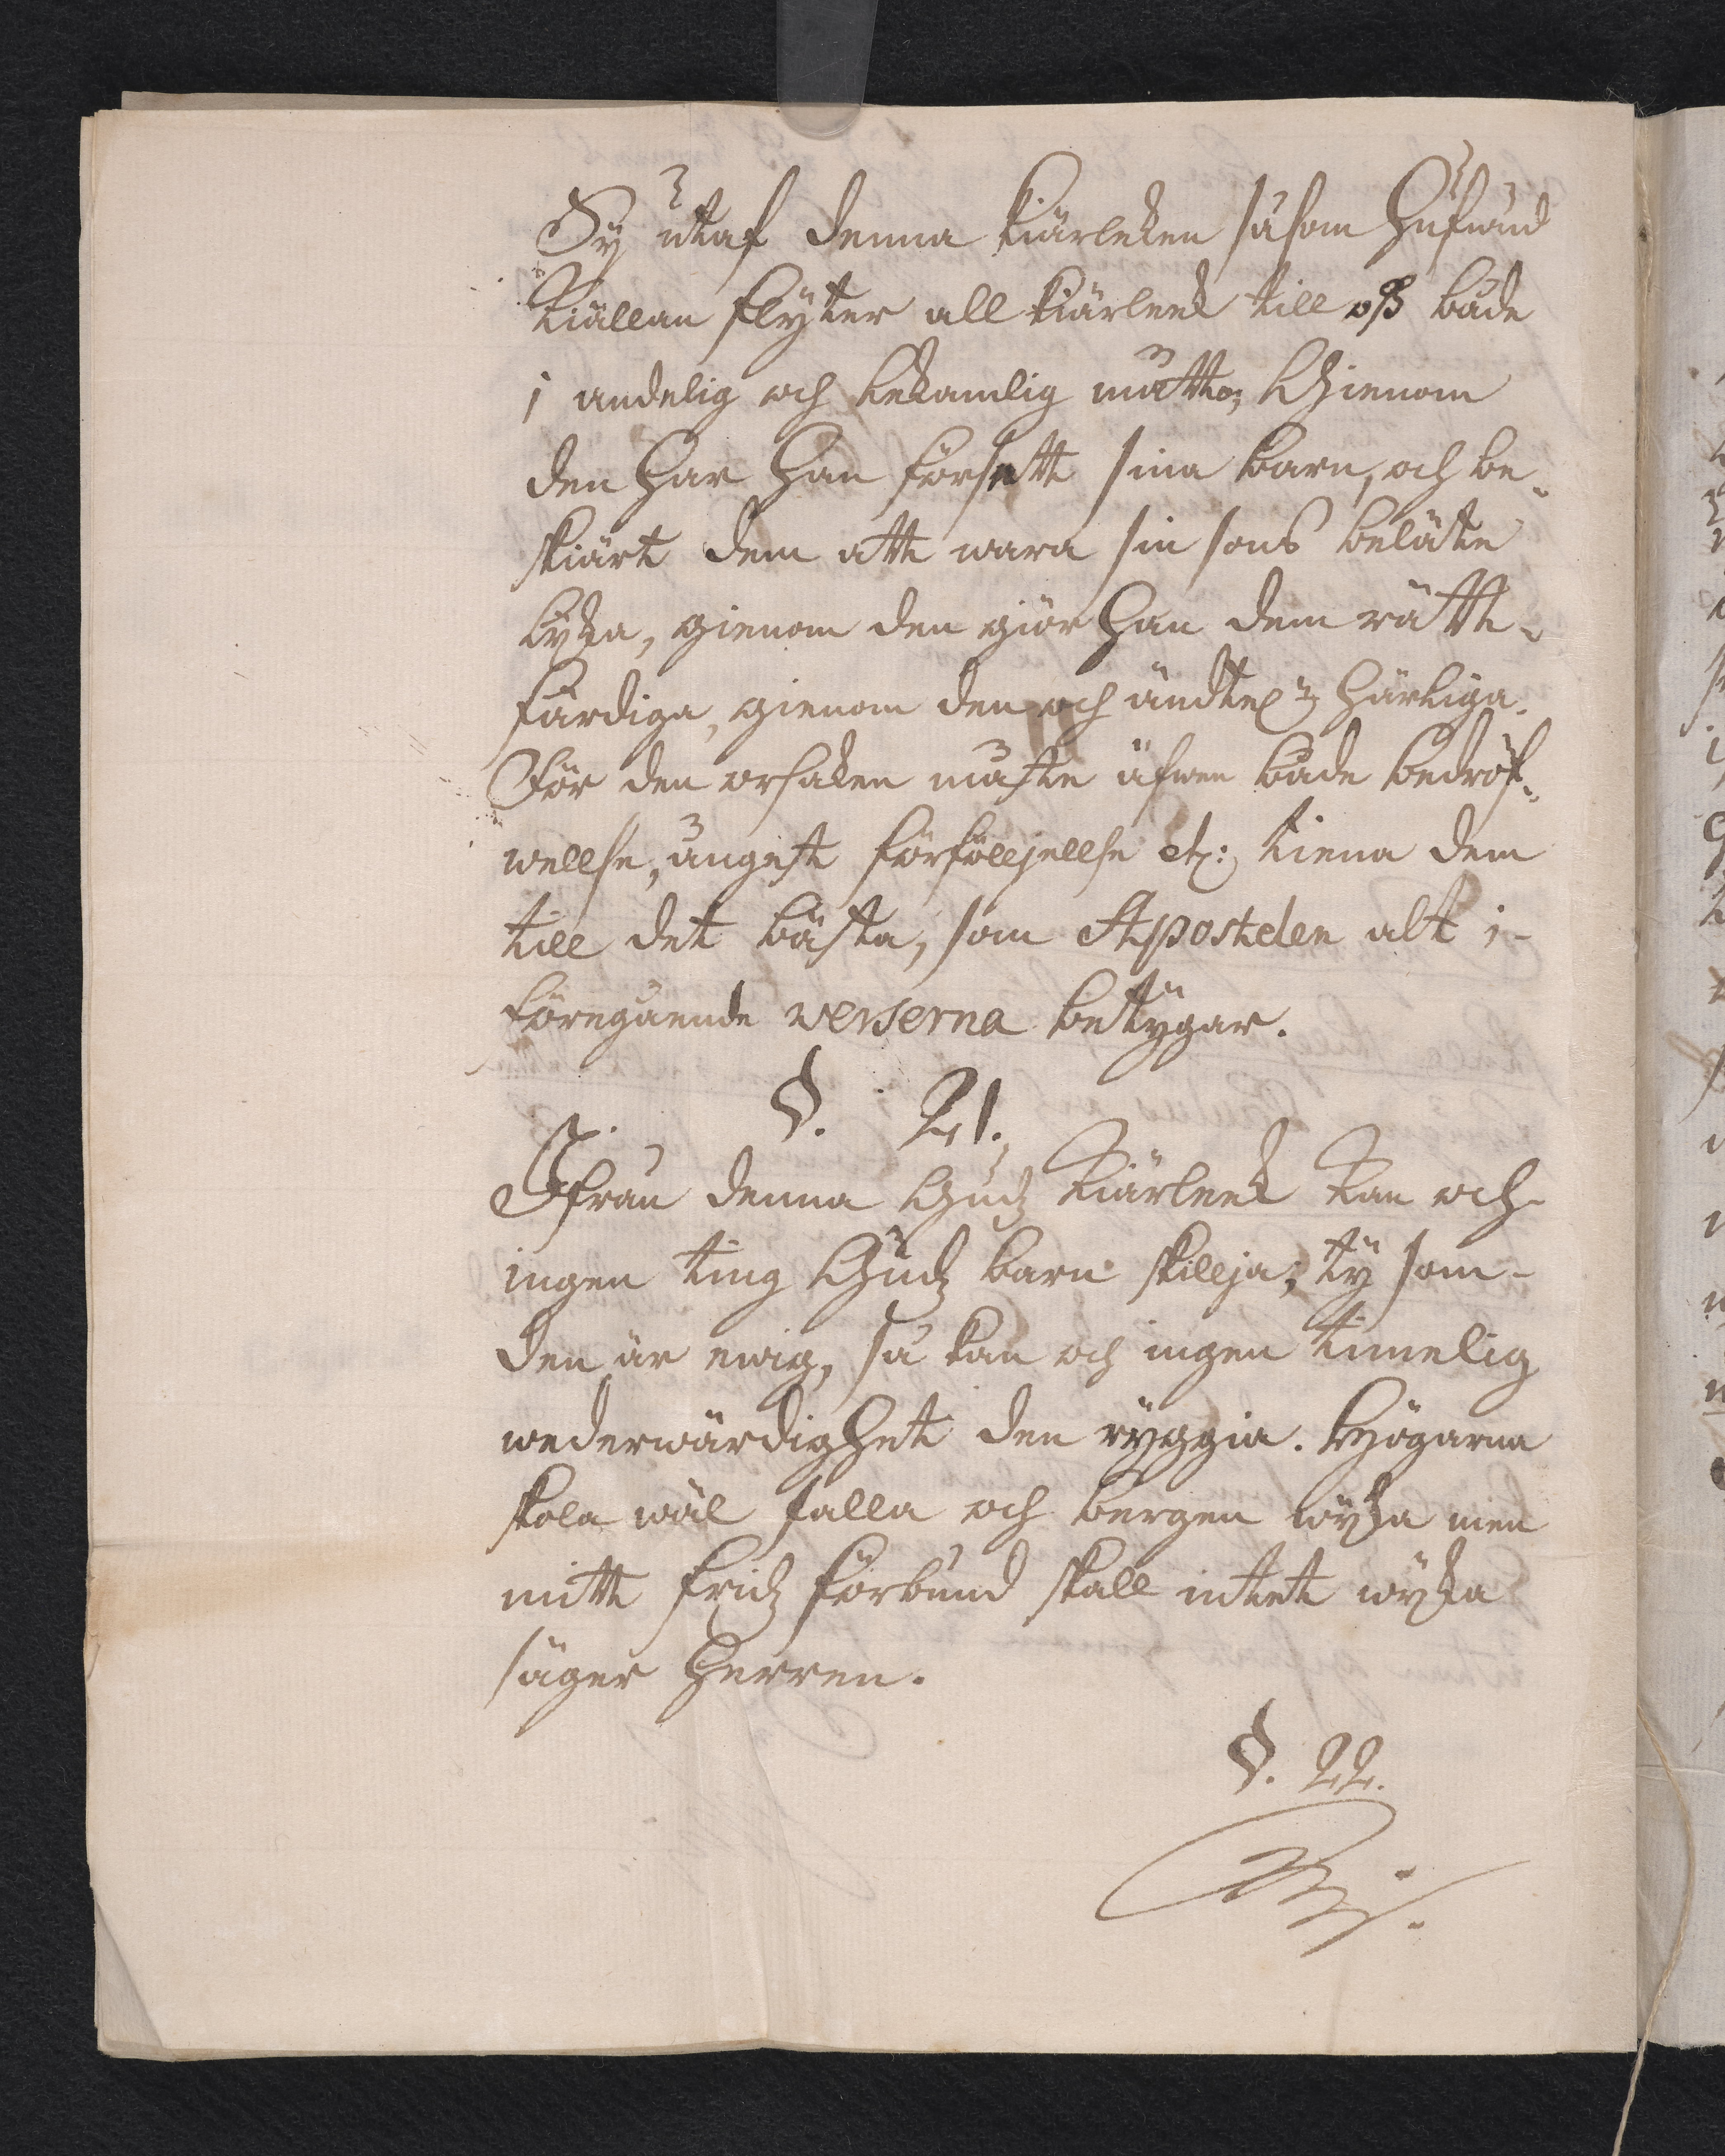 Ty utaf denna kiärleken såsom hufwud
källan flÿter all kiärleek till oß både
i andelig och lekamlig måtto; Gienom
den har han försett sina barn, och be-
skiärt dem att wara sin sons beläte
lÿka, gienom den giör han dem rätt-
färdiga, gienom den och ändtel: härliga.
För den orsaken måste äfwen både bedröf-
wellse, ångest förfölljellse etc: tiena dem
till det bästa, som Apostelen alt i
föregående verserna betÿgar.
§. 21.
Ifrån denna Gudz kiärleek kan och
ingen ting Gudz barn skillja; tÿ som
den är ewig, så kan och ingen timelig
wederwärdighet den rÿggia. Högarna
skola wäl falla och bergen wÿka men
mitt fridz förbund skall intet wÿka
säger Herren.
§. 22.